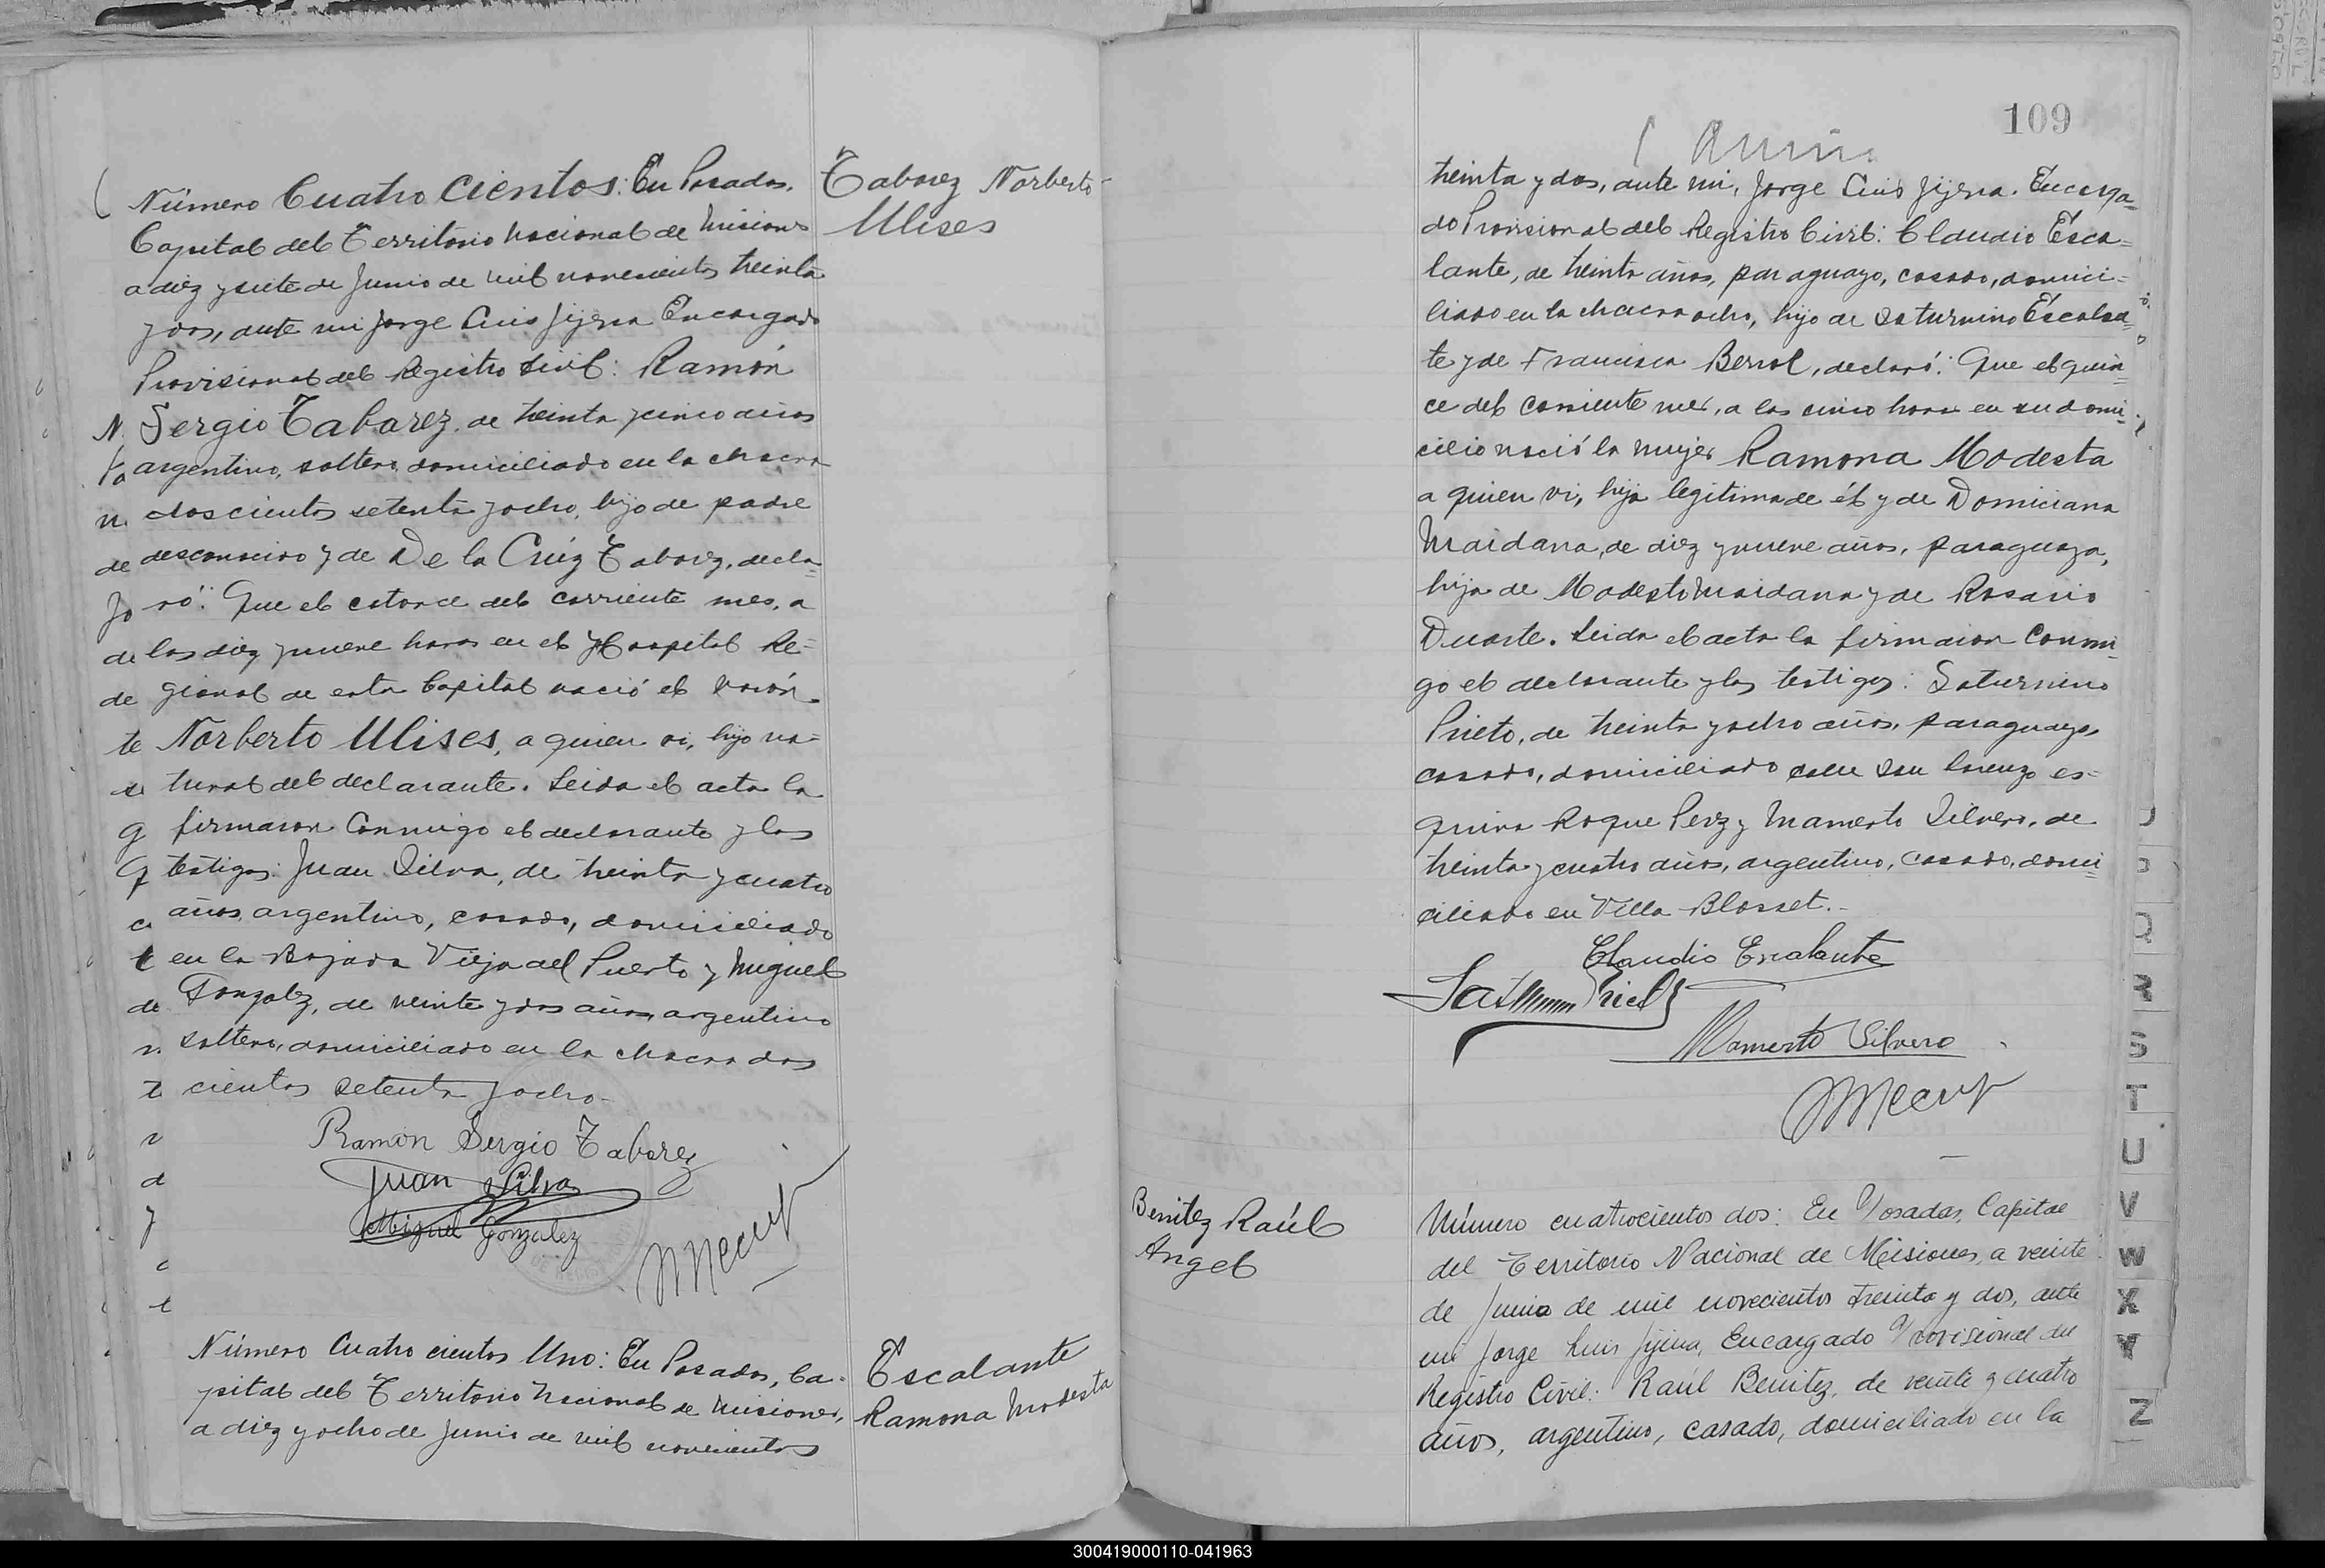 Número Cuatro Cientos: En Posadas,
Capital del Territorio Nacional de Misiones
a diez y siete de Junio de mil novecientos treinta
y dos, ante mi Jorge Luis Jijena Encargado
Provisional del Registro Civil: Ramón
Sergio Tabarez, de treinta y cinco años
argentino, soltero, domiciliado en la chacra
doscientos setenta y ocho, hijo de padre
desconocido y de De la Crúz Tabarez, decla=
ró: Que el catorce del corriente mes, a
las diez y nueve horas en el Hospital Re=
gional de esta Capital nació el varón
Norberto Ulises, a quien vi, hijo na=
tural del declarante. Leida el acta la
firmaron Conmigo el declarante y los
testigos: Juan Silva, de treinta y cuatro
años, argentino, casado, domiciliado
en la Bajada Vieja del Puerto y Miguel
Gonzalez, de veinte y dos años, argentino
soltero, domiciliado en la chacra dos
cientos setenta y ocho.
Ramón Sergio Tabarez
Juan Silva
Miguel Gonzalez
Tabarez Norberto
Ulises
Número Cuatro cientos Uno: En Posadas, Ca-
pital del Territorio Nacional de Misiones,
a diez y ocho de Junio de mil novecientos
Escalante
Ramona Modesta
109
treinta y dos, ante mi, Jorge Luis Jijena. Encarga=
do Provisional del Registro Civil: Claudio Esca=
lante, de treinta años, paraguayo, casado, domici=
liado en la chacra ocho, hijo de Saturnino Escalan=
te y de Francisca Bernal, declaró: Que el quin=
ce del corriente mes, a las cinco horas en su domi=
cilio nació la mujer Ramona Modesta
a quien vi, hija legitima de él y de Domiciana
Maidana, de diez y nueve años, paraguaya,
hija de Modesto Maidana y de Rosario
Duarte. Leida el acta la firmaron Conmi=
go el declarante y los testigos: Saturnino
Prieto, de treinta y ocho años, paraguayo,
casado, domiciliado calle San Lorenzo es=
quina Roque Perez y Mamerto Silvero, de
treinta y cuatro años, argentino, casado, domi=
ciliado en Villa Blosset.-
Claudio Escalante
Mamerto Silvero
Benitez Raúl
Angel
Número cuatrocientos dos: En Posadas, Capital
del Territorio Nacional de Misiones, a veinte
de Junio de mil novecientos treinta y dos, ante
mi Jorge Luis Jijena, Encargado Provisional del
Registro Civil: Raúl Benitez, de veinte y cuatro
años, argentino, casado, domiciliado en la
Q
R
S
T
U
V
W
X
Y
Z
300419000110-041963